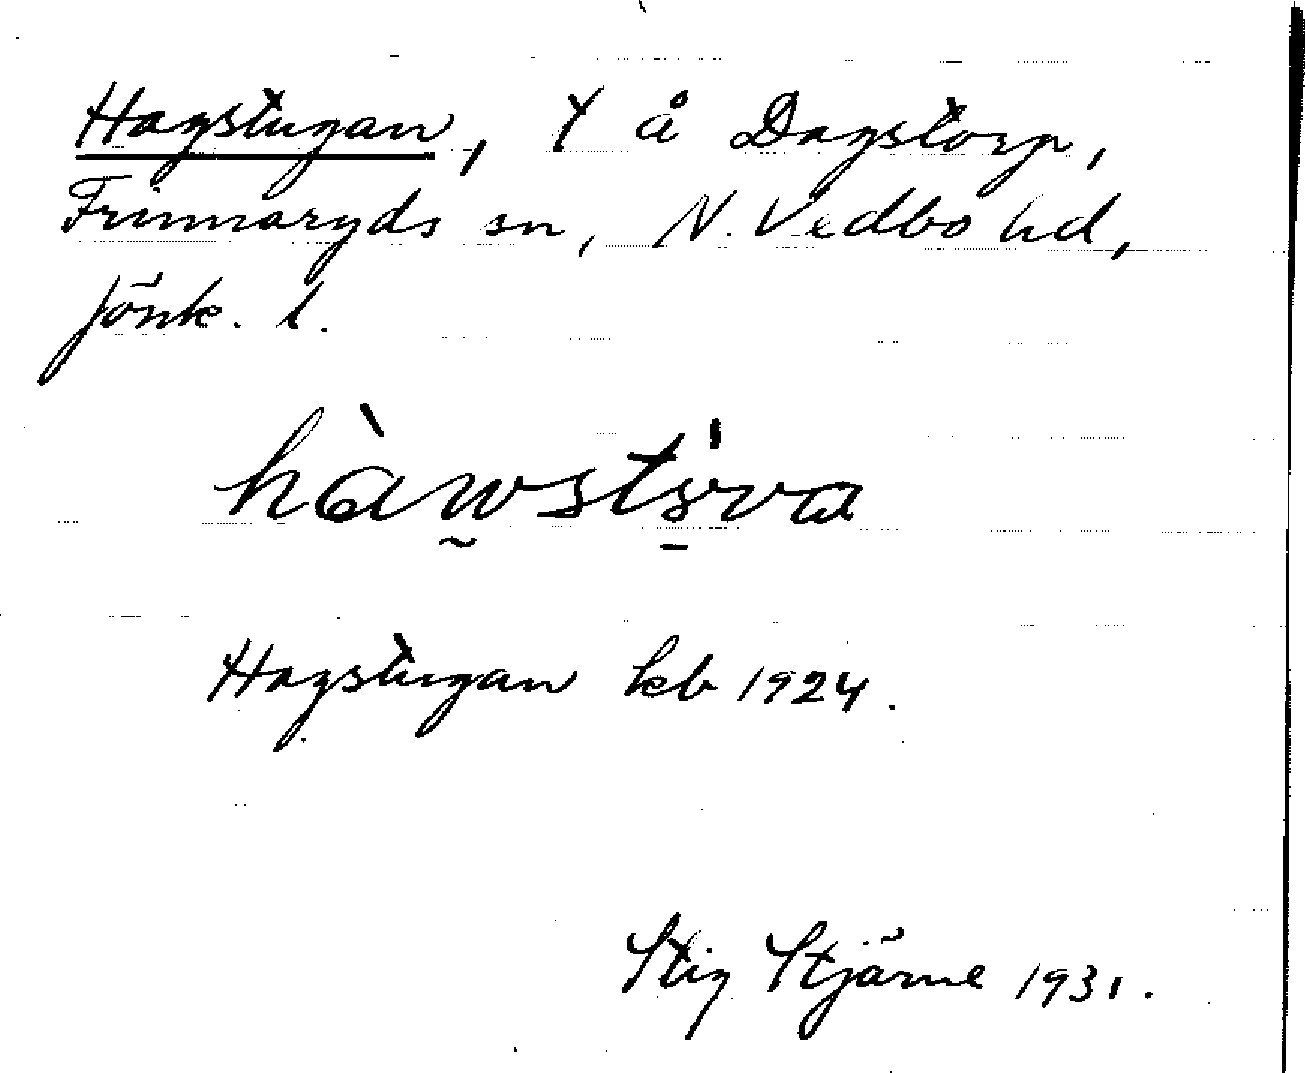 Hagstugan, † å Dagstorp,
Frinnaryds sn, N. Vedbo hd,
Jönk. l.
hàw̰sts̱va
Hagstugan kb 1924.
Stig Stjärne 1931.